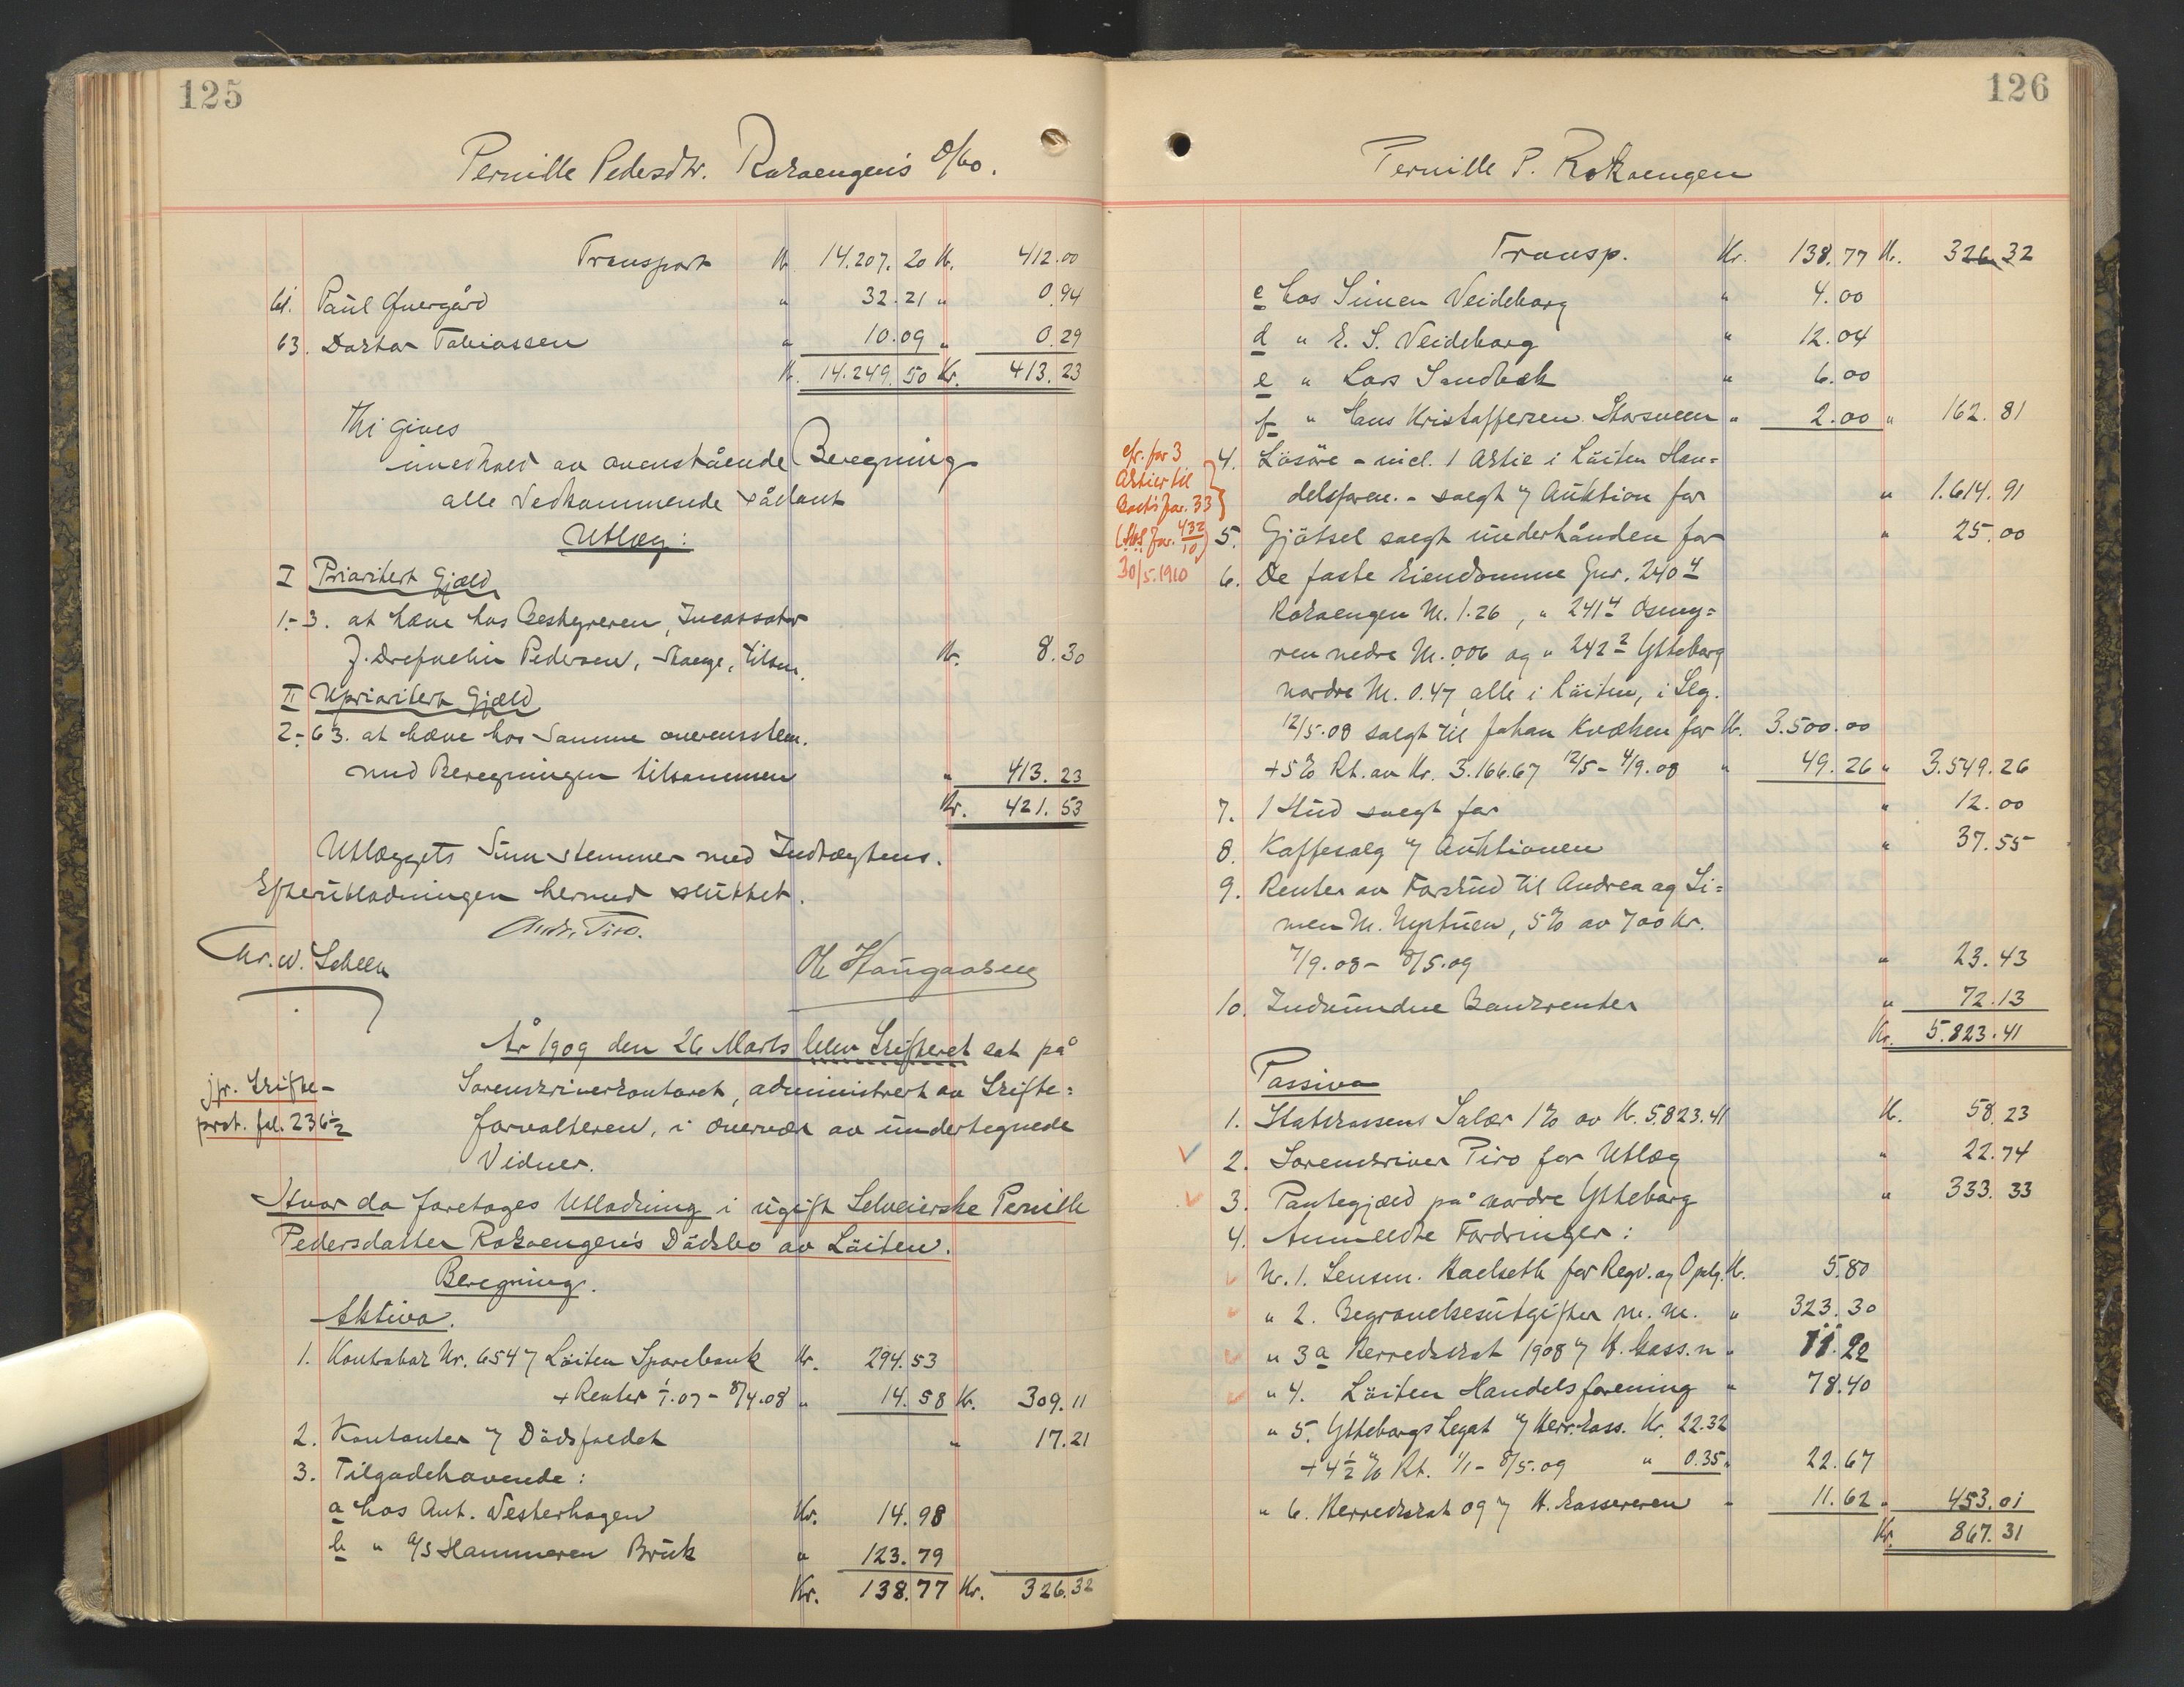 125
Pernille Pedersdtr. Rokoengen's D/bo.
Transport Kr. 14.207.20 Kr. 412.00
61. Paul Qvergård " 32.21 " 0.94
63. Dorthor Tobiassen " 10.09 " 0.29
Kr. 14.249.50 Kr. 413.23
Thi gives
i medhold av ovenstående Beregning
alle Vedkommende sådant
Utlæg:
I Prioritert Gjæld
1.-3. at hæve hos Bestyreren, Incassator
J. Drefvelin Pedersen, Stange, tilsm. Kr. 8.30
II Uprioritert Gjæld
2-63. at hæve hos Samme overensstem.
med Beregningen tilsammen " 413.23
Kr. 421.53
Utlæggets Sum stemmer med Indtægtens.
Efterutlodningen hermed sluttet.
Andr. Piro.
Chr. W. Scheen
Ole Haugaasen
År 1909 den 26 Marts blev Skifteret sat på
jfr. Skifte-
Sorenskriverkontoret, administrert av Skifte=
prot. fol. 236 1/2
forvalteren, i overvær av undertegnede
Vidner.
Hvor da foretoges Utlodning i ugift Selveierske Pernille
Pedersdatter Rokoengen's Dödsbo av Löiten.
Beregning.
Aktiva.
1. Kontrabok Nr. 654 i Löiten Sparebank Kr. 294.53
+ Renter 1/1.07 - 8/4.08 " 14.58 Kr. 309.11
2. Kontanter v Dödsfaldet " 17.21
3. Tilgodehavende:
a hos Ant. Vesterhagen Kr. 14.98
b " A/S Hammeren Bruk " 123.79
Kr. 138.77 Kr. 326.32
126
Pernille P. Rokoengen
Transp. Kr. 138.77 Kr. 326.32
c hos Simen Veideborg " 4.00
d " E. S. Veideborg " 12.04
e " Lars Sandbæk " 6.00
f " Hans Kristoffersen Storsveen " 2.00 " 162.81
cfr. for 3
4. Lösöre - incl. 1 Aktie i Löiten Han=
Aktier til
delsforen. - solgt v Auktion for " 1.614.91
Boets for. 33
5. Gjötsel solgt underhånden for " 25.00
432/10)
30/5.1910
6. De faste Eiendomme Gnr. 240 4
Rokoengen M. 1.26, " 241 4 Osmy=
ren nedre M. 0.06 og " 242 2 Ytteborg
nordre M. 0.47, alle i Löiten, i Slg.
12/5.08 solgt til Johan Kvæken for Kr. 3.500.00
+ 5% Rt. av Kr. 3.166.67 12/5 - 4/9.08 " 49.26 " 3.549.26
7. 1 Hud solgt for " 12.00
8. Kaffesalg v Auktionen " 37.55
9. Renter av Forskud til Andrea og Si=
men M. Nystuen, 5% av 700 Kr.
7/9.08 - 8/5.09 " 23.43
10. Indvundne Bankrenter " 72.13
Kr. 5.823.41
Passiva
1. Statskassens Salær 1% av Kr. 5.823.41 Kr. 58.23
2. Sorenskriver Piro for Utlæg " 22.74
3. Pantegjæld på nordre Ytteborg " 333.33
4. Anmeldte Fordringer:
Nr. 1. Lensm. Kaelseth for Regv. og Opslg. Kr. 5.80
" 2. Begravelsesutgifter m. m. " 323.30
" 3a Herredsskat 1908 v H. kass.n " 11.22
" 4. Löiten Handelsforening " 78.40
" 5. Ytteborgs Legat v Herr. kass. Kr. 22.32
+ 4 1/2 % Rt. 1/1 - 8/5.09 " 0.35 " 22.67
" 6. Herredsskat 09 v H. kassereren " 11.62 " 453.01
Kr. 867.31